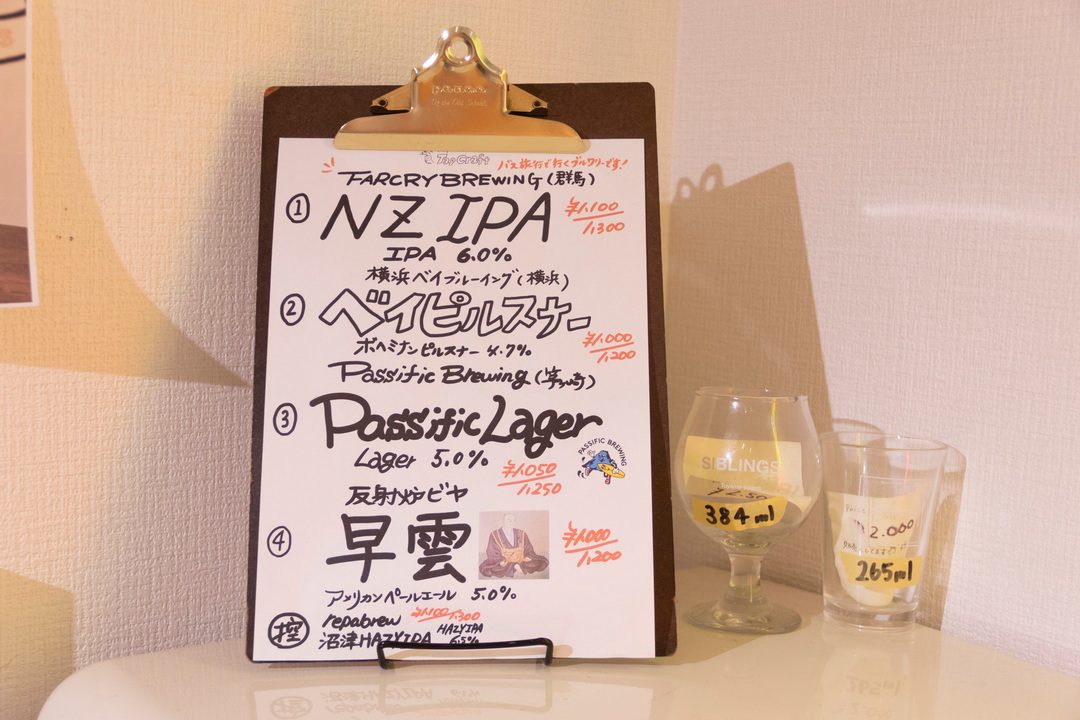 Tap Craft
バス旅行で行くブルワリーです!
FARCRY BREWING (群馬)
① NZ IPA ¥1,100/1,300
IPA 6.0%
横浜ベイブルーイング(横浜)
② ベイピルスナー
ボヘミアンピルスナー 4.7% ¥1,000/1,200
Passific Brewing (茅ヶ崎)
③ Passific Lager
Lager 5.0% ¥1,050/1,250
PASSIFIC BREWING
反射炉ビヤ
④ 早雲 ¥1,000/1,200
アメリカンペールエール 5.0%
控 repabrew ¥1,100/1,300
沼津HAZYIPA HAZYIPA 6.5%
SIBLINGS
384ml
2.000
265ml